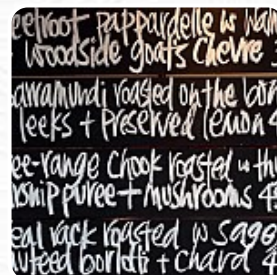 eetroot pappardelle w waln
woodside goats chevre
arramundi roasted on the bon
leeks + preserved lemon 4
ee-range chook roasted w th
rsnip puree + mushrooms 4
eal rack roasted w sage
uteed borlotti + chard 4